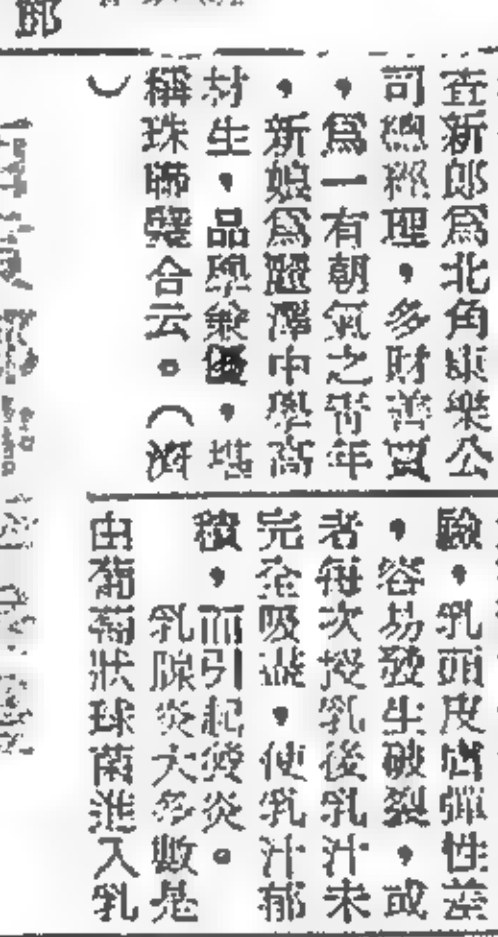 郎
查新郎爲北角東樂公
司總經理，多財善賈
，爲一有朝氣之青年
，新娘爲麗澤中學高
材生，品學兼優，堪
稱珠聯璧合云。（濟
）
驗，乳頭皮膚彈性差
，容易發生破裂，或
者每次授乳後乳汁未
完全吸淨，使乳汁郁
積，而引起發炎。
乳腺炎大多數是
由葡萄狀球菌進入乳